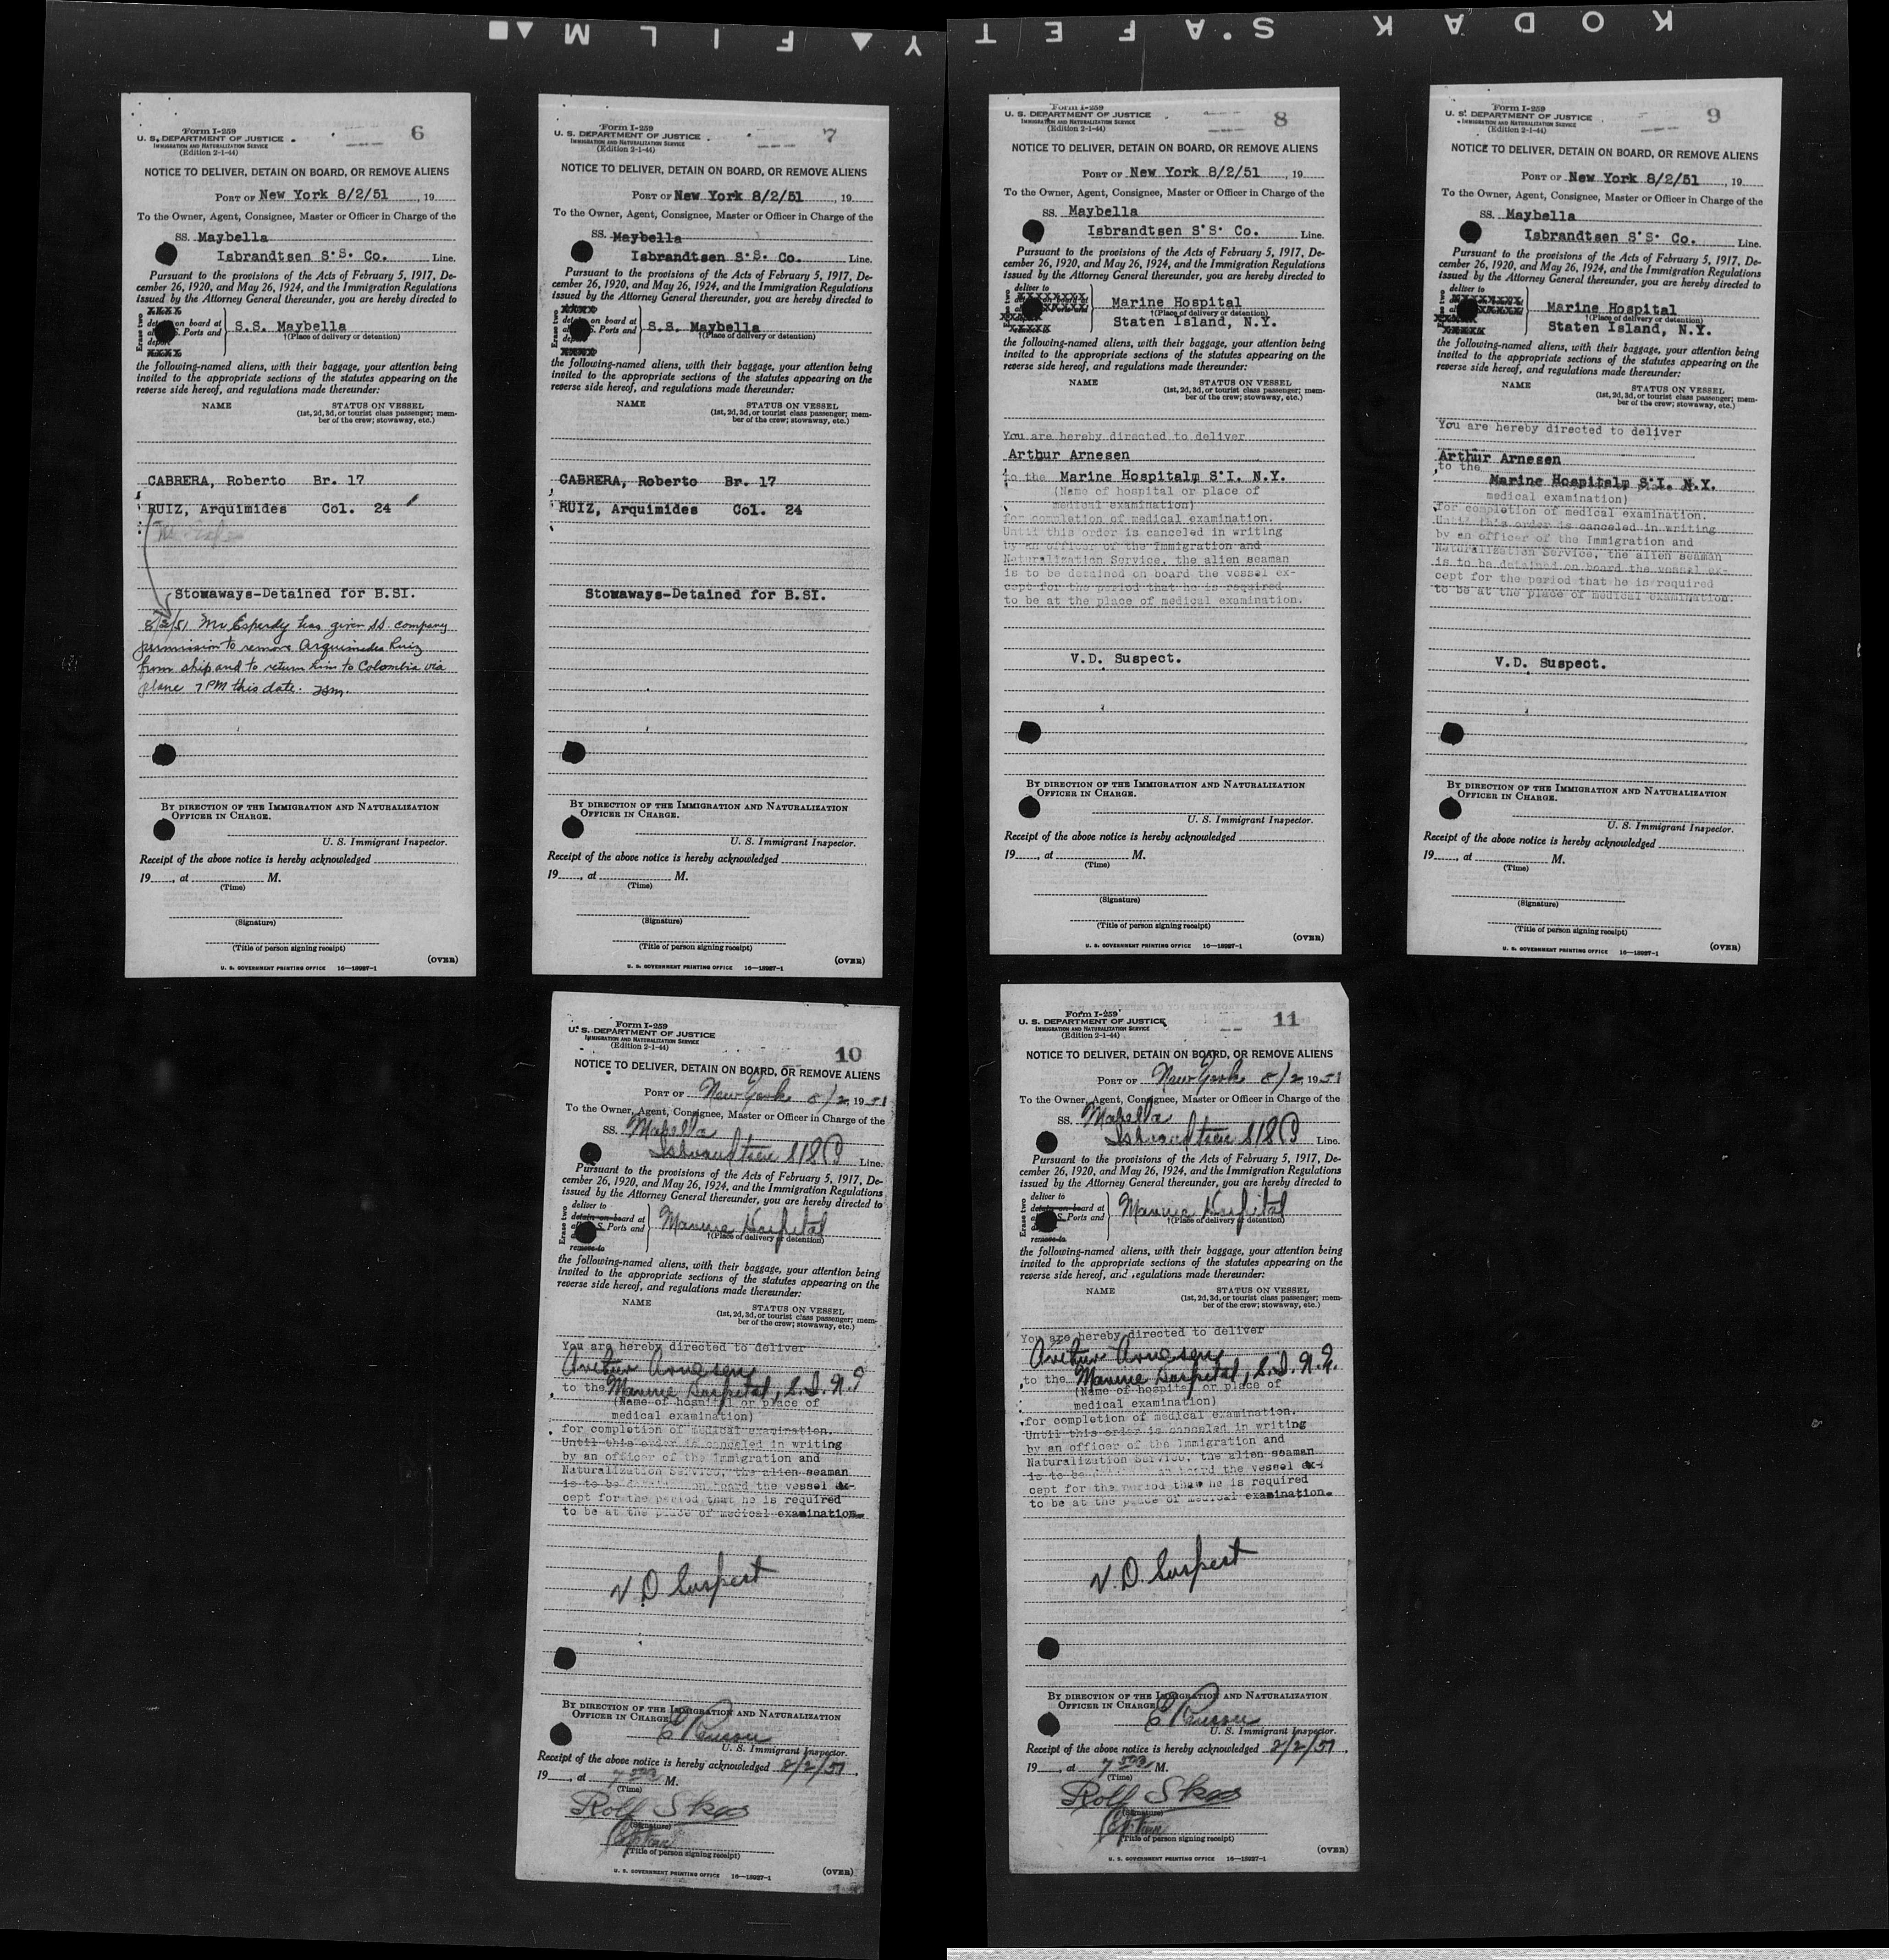 KODAK SAFETY FILM
6
Form I-259
U. S. DEPARTMENT OF JUSTICE
IMMIGRATION AND NATURALIZATION SERVICE
(Edition 2-1-44)
NOTICE TO DELIVER, DETAIN ON BOARD, OR REMOVE ALIENS
PORT OF New York 8/2/51, 19
To the Owner, Agent, Consignee, Master or Officer in Charge of the
SS. Maybella
Isbrandtsen S.S. Co. Line.
Pursuant to the provisions of the Acts of February 5, 1917, De-
cember 26, 1920, and May 26, 1924, and the Immigration Regulations
issued by the Attorney General thereunder, you are hereby directed to
Erase two
XXXX
on board at
S. Ports and
S.S. Maybella
†(Place of delivery or detention)
XXXX
the following-named aliens, with their baggage, your attention being
invited to the appropriate sections of the statutes appearing on the
reverse side hereof, and regulations made thereunder:
NAME STATUS ON VESSEL
(1st, 2d, 3d, or tourist class passenger; mem-
ber of the crew; stowaway, etc.)
CABRERA, Roberto Br. 17
RUIZ, Arquimides Col. 24
Stowaways-Detained for B.SI.
8/2/51 Mr Esperdy has given SS. company
permission to remove Arquimides Ruiz
from ship and to return him to Colombia via
plane 7 PM this date.
BY DIRECTION OF THE IMMIGRATION AND NATURALIZATION
OFFICER IN CHARGE.
U. S. Immigrant Inspector.
Receipt of the above notice is hereby acknowledged
19, at M.
(Time)
(Signature)
(Title of person signing receipt)
U. S. GOVERNMENT PRINTING OFFICE 16—18927-1
(OVER)
7
Form I-259
U. S. DEPARTMENT OF JUSTICE
IMMIGRATION AND NATURALIZATION SERVICE
(Edition 2-1-44)
NOTICE TO DELIVER, DETAIN ON BOARD, OR REMOVE ALIENS
PORT OF New York 8/2/51, 19
To the Owner, Agent, Consignee, Master or Officer in Charge of the
SS. Maybella
Isbrandtsen S.S. Co. Line.
Pursuant to the provisions of the Acts of February 5, 1917, De-
cember 26, 1920, and May 26, 1924, and the Immigration Regulations
issued by the Attorney General thereunder, you are hereby directed to
Erase two
XXXX
on board at
S. Ports and
S.S. Maybella
†(Place of delivery or detention)
XXXX
the following-named aliens, with their baggage, your attention being
invited to the appropriate sections of the statutes appearing on the
reverse side hereof, and regulations made thereunder:
NAME STATUS ON VESSEL
(1st, 2d, 3d, or tourist class passenger; mem-
ber of the crew; stowaway, etc.)
CABRERA, Roberto Br. 17
RUIZ, Arquimides Col. 24
Stowaways-Detained for B.SI.
BY DIRECTION OF THE IMMIGRATION AND NATURALIZATION
OFFICER IN CHARGE.
U. S. Immigrant Inspector.
Receipt of the above notice is hereby acknowledged
19, at M.
(Time)
(Signature)
(Title of person signing receipt)
U. S. GOVERNMENT PRINTING OFFICE 16—18927-1
(OVER)
8
Form I-259
U. S. DEPARTMENT OF JUSTICE
IMMIGRATION AND NATURALIZATION SERVICE
(Edition 2-1-44)
NOTICE TO DELIVER, DETAIN ON BOARD, OR REMOVE ALIENS
PORT OF New York 8/2/51, 19
To the Owner, Agent, Consignee, Master or Officer in Charge of the
SS. Maybella
Isbrandtsen S.S. Co. Line.
Pursuant to the provisions of the Acts of February 5, 1917, De-
cember 26, 1920, and May 26, 1924, and the Immigration Regulations
issued by the Attorney General thereunder, you are hereby directed to
Erase two
deliver to
Marine Hospital
†(Place of delivery or detention)
Staten Island, N.Y.
the following-named aliens, with their baggage, your attention being
invited to the appropriate sections of the statutes appearing on the
reverse side hereof, and regulations made thereunder:
NAME STATUS ON VESSEL
(1st, 2d, 3d, or tourist class passenger; mem-
ber of the crew; stowaway, etc.)
You are hereby directed to deliver
Arthur Arnesen
to the Marine Hospitalm S'I. N.Y.
(Name of hospital or place of
medical examination)
for completion of medical examination.
Until this order is canceled in writing
by an officer of the Immigration and
Naturalization Service, the alien seaman
is to be detained on board the vessel ex-
cept for the period that he is required
to be at the place of medical examination.
V.D. Suspect.
BY DIRECTION OF THE IMMIGRATION AND NATURALIZATION
OFFICER IN CHARGE.
U. S. Immigrant Inspector.
Receipt of the above notice is hereby acknowledged
19, at M.
(Time)
(Signature)
(Title of person signing receipt)
U. S. GOVERNMENT PRINTING OFFICE 16—18927-1
(OVER)
9
Form I-259
U. S. DEPARTMENT OF JUSTICE
IMMIGRATION AND NATURALIZATION SERVICE
(Edition 2-1-44)
NOTICE TO DELIVER, DETAIN ON BOARD, OR REMOVE ALIENS
PORT OF New York 8/2/51, 19
To the Owner, Agent, Consignee, Master or Officer in Charge of the
SS. Maybella
Isbrandtsen S.S. Co. Line.
Pursuant to the provisions of the Acts of February 5, 1917, De-
cember 26, 1920, and May 26, 1924, and the Immigration Regulations
issued by the Attorney General thereunder, you are hereby directed to
Erase two
deliver to
Marine Hospital
†(Place of delivery or detention)
Staten Island, N.Y.
the following-named aliens, with their baggage, your attention being
invited to the appropriate sections of the statutes appearing on the
reverse side hereof, and regulations made thereunder:
NAME STATUS ON VESSEL
(1st, 2d, 3d, or tourist class passenger; mem-
ber of the crew; stowaway, etc.)
You are hereby directed to deliver
Arthur Arnesen
to the
Marine Hospitalm S'I. N.Y.
medical examination)
for completion of medical examination.
Until this order is canceled in writing
by an officer of the Immigration and
Naturalization Service, the alien seaman
is to be detained on board the vessel ex-
cept for the period that he is required
to be at the place of medical examination.
V.D. Suspect.
BY DIRECTION OF THE IMMIGRATION AND NATURALIZATION
OFFICER IN CHARGE.
U. S. Immigrant Inspector.
Receipt of the above notice is hereby acknowledged
19, at M.
(Time)
(Signature)
(Title of person signing receipt)
U. S. GOVERNMENT PRINTING OFFICE 16—18927-1
(OVER)
10
Form I-259
U. S. DEPARTMENT OF JUSTICE
IMMIGRATION AND NATURALIZATION SERVICE
(Edition 2-1-44)
NOTICE TO DELIVER, DETAIN ON BOARD, OR REMOVE ALIENS
PORT OF New York 8/2, 1951
To the Owner, Agent, Consignee, Master or Officer in Charge of the
SS. Mabella
Isbrandtsen Line.
Pursuant to the provisions of the Acts of February 5, 1917, De-
cember 26, 1920, and May 26, 1924, and the Immigration Regulations
issued by the Attorney General thereunder, you are hereby directed to
Erase two
deliver to
detain on board at
S. Ports and
remove to
Marine Hospital
†(Place of delivery or detention)
the following-named aliens, with their baggage, your attention being
invited to the appropriate sections of the statutes appearing on the
reverse side hereof, and regulations made thereunder:
NAME STATUS ON VESSEL
(1st, 2d, 3d, or tourist class passenger; mem-
ber of the crew; stowaway, etc.)
You are hereby directed to deliver
Arthur Arnesen
to the Marine Hospital, S.I. N.Y
(Name of hospital or place of
medical examination)
for completion of medical examination.
Until this order is canceled in writing
by an officer of the Immigration and
Naturalization Service, the alien seaman
is to be detained on board the vessel ex-
cept for the period that he is required
to be at the place of medical examination.
V.D Suspect
BY DIRECTION OF THE IMMIGRATION AND NATURALIZATION
OFFICER IN CHARGE.
U. S. Immigrant Inspector.
Receipt of the above notice is hereby acknowledged 8/2/51,
19, at 7 M.
(Time)
Rolf
(Signature)
Captain
(Title of person signing receipt)
U. S. GOVERNMENT PRINTING OFFICE 16—18927-1
(OVER)
11
Form I-259
U. S. DEPARTMENT OF JUSTICE
IMMIGRATION AND NATURALIZATION SERVICE
(Edition 2-1-44)
NOTICE TO DELIVER, DETAIN ON BOARD, OR REMOVE ALIENS
PORT OF New York 8/2, 1951
To the Owner, Agent, Consignee, Master or Officer in Charge of the
SS. Mabella
Isbrandtsen Line.
Pursuant to the provisions of the Acts of February 5, 1917, De-
cember 26, 1920, and May 26, 1924, and the Immigration Regulations
issued by the Attorney General thereunder, you are hereby directed to
Erase two
deliver to
detain on board at
S. Ports and
remove to
Marine Hospital
†(Place of delivery or detention)
the following-named aliens, with their baggage, your attention being
invited to the appropriate sections of the statutes appearing on the
reverse side hereof, and regulations made thereunder:
NAME STATUS ON VESSEL
(1st, 2d, 3d, or tourist class passenger; mem-
ber of the crew; stowaway, etc.)
You are hereby directed to deliver
Arthur Arnesen
to the Marine Hospital, S.I. N.Y.
(Name of hospital or place of
medical examination)
for completion of medical examination.
Until this order is canceled in writing
by an officer of the Immigration and
Naturalization Service, the alien seaman
is to be on board the vessel ex-
cept for the period that he is required
to be at the place of medical examination.
V.D. Suspect
BY DIRECTION OF THE IMMIGRATION AND NATURALIZATION
OFFICER IN CHARGE
U. S. Immigrant Inspector.
Receipt of the above notice is hereby acknowledged 8/2/51,
19, at 7 M.
(Time)
Rolf
(Signature)
Captain
(Title of person signing receipt)
U. S. GOVERNMENT PRINTING OFFICE 16—18927-1
(OVER)